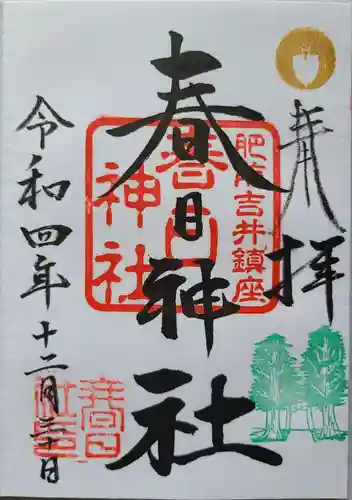 奉拝
春日神社
令和四年十二月三十日
肥前吉井鎮座
春日
神社